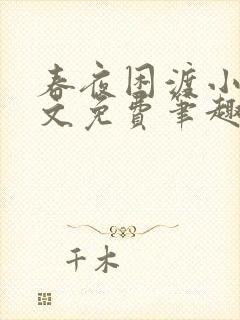 春夜困渡小
文免费笔趣
千木